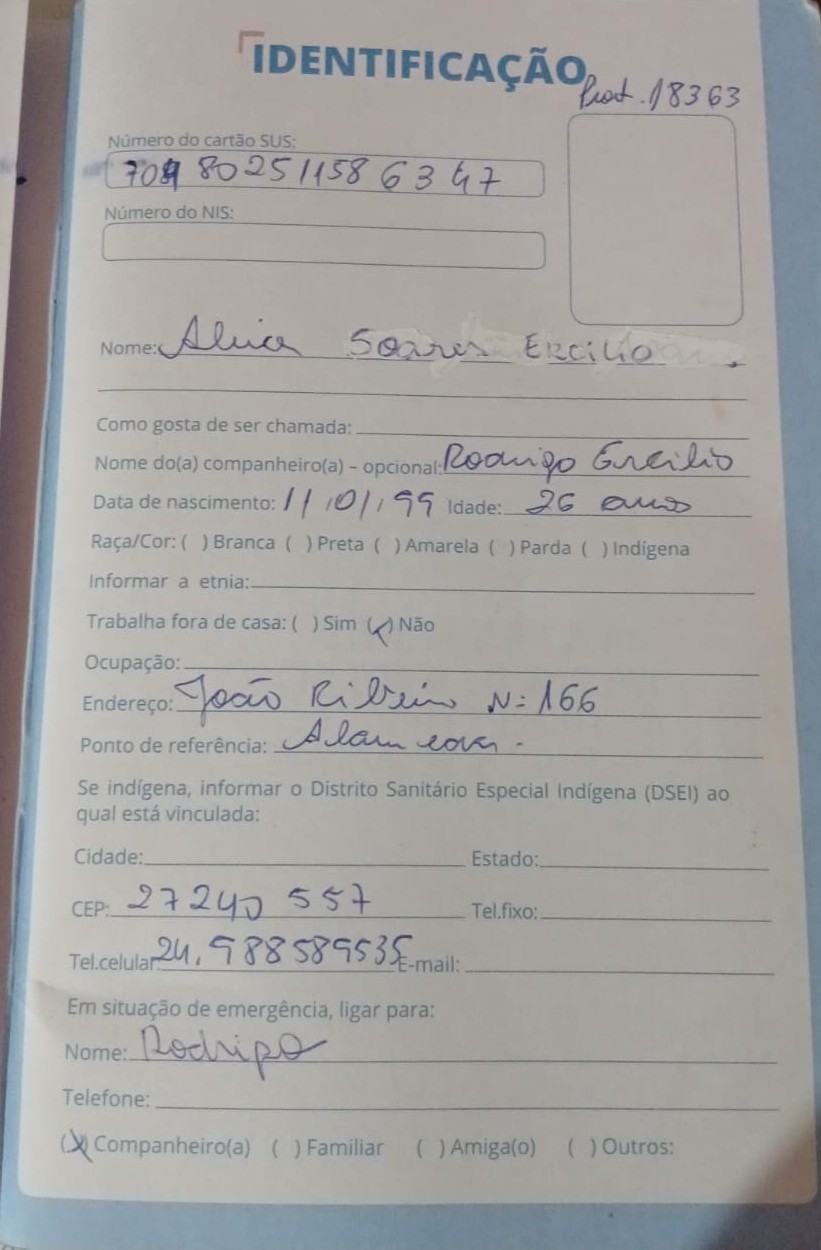 IDENTIFICAÇÃO
Pront. 18363
Número do cartão SUS:
709 80251158 6347
Número do NIS:
Nome: Soares Ercilio
Como gosta de ser chamada:
Nome do(a) companheiro(a) – opcional: Rodrigo Ercilio
Data de nascimento: 11/01/99 Idade: 26 anos
Raça/Cor: ( ) Branca ( ) Preta ( ) Amarela ( ) Parda ( ) Indígena
Informar a etnia:
Trabalha fora de casa: ( ) Sim (x) Não
Ocupação:
Endereço: João Ribeiro N= 166
Ponto de referência:
Se indígena, informar o Distrito Sanitário Especial Indígena (DSEI) ao
qual está vinculada:
Cidade: Estado:
CEP: 27240 557 Tel.fixo:
Tel.celular: 24.988589535 E-mail:
Em situação de emergência, ligar para:
Nome: Rodrigo
Telefone:
(x) Companheiro(a) ( ) Familiar ( ) Amiga(o) ( ) Outros: